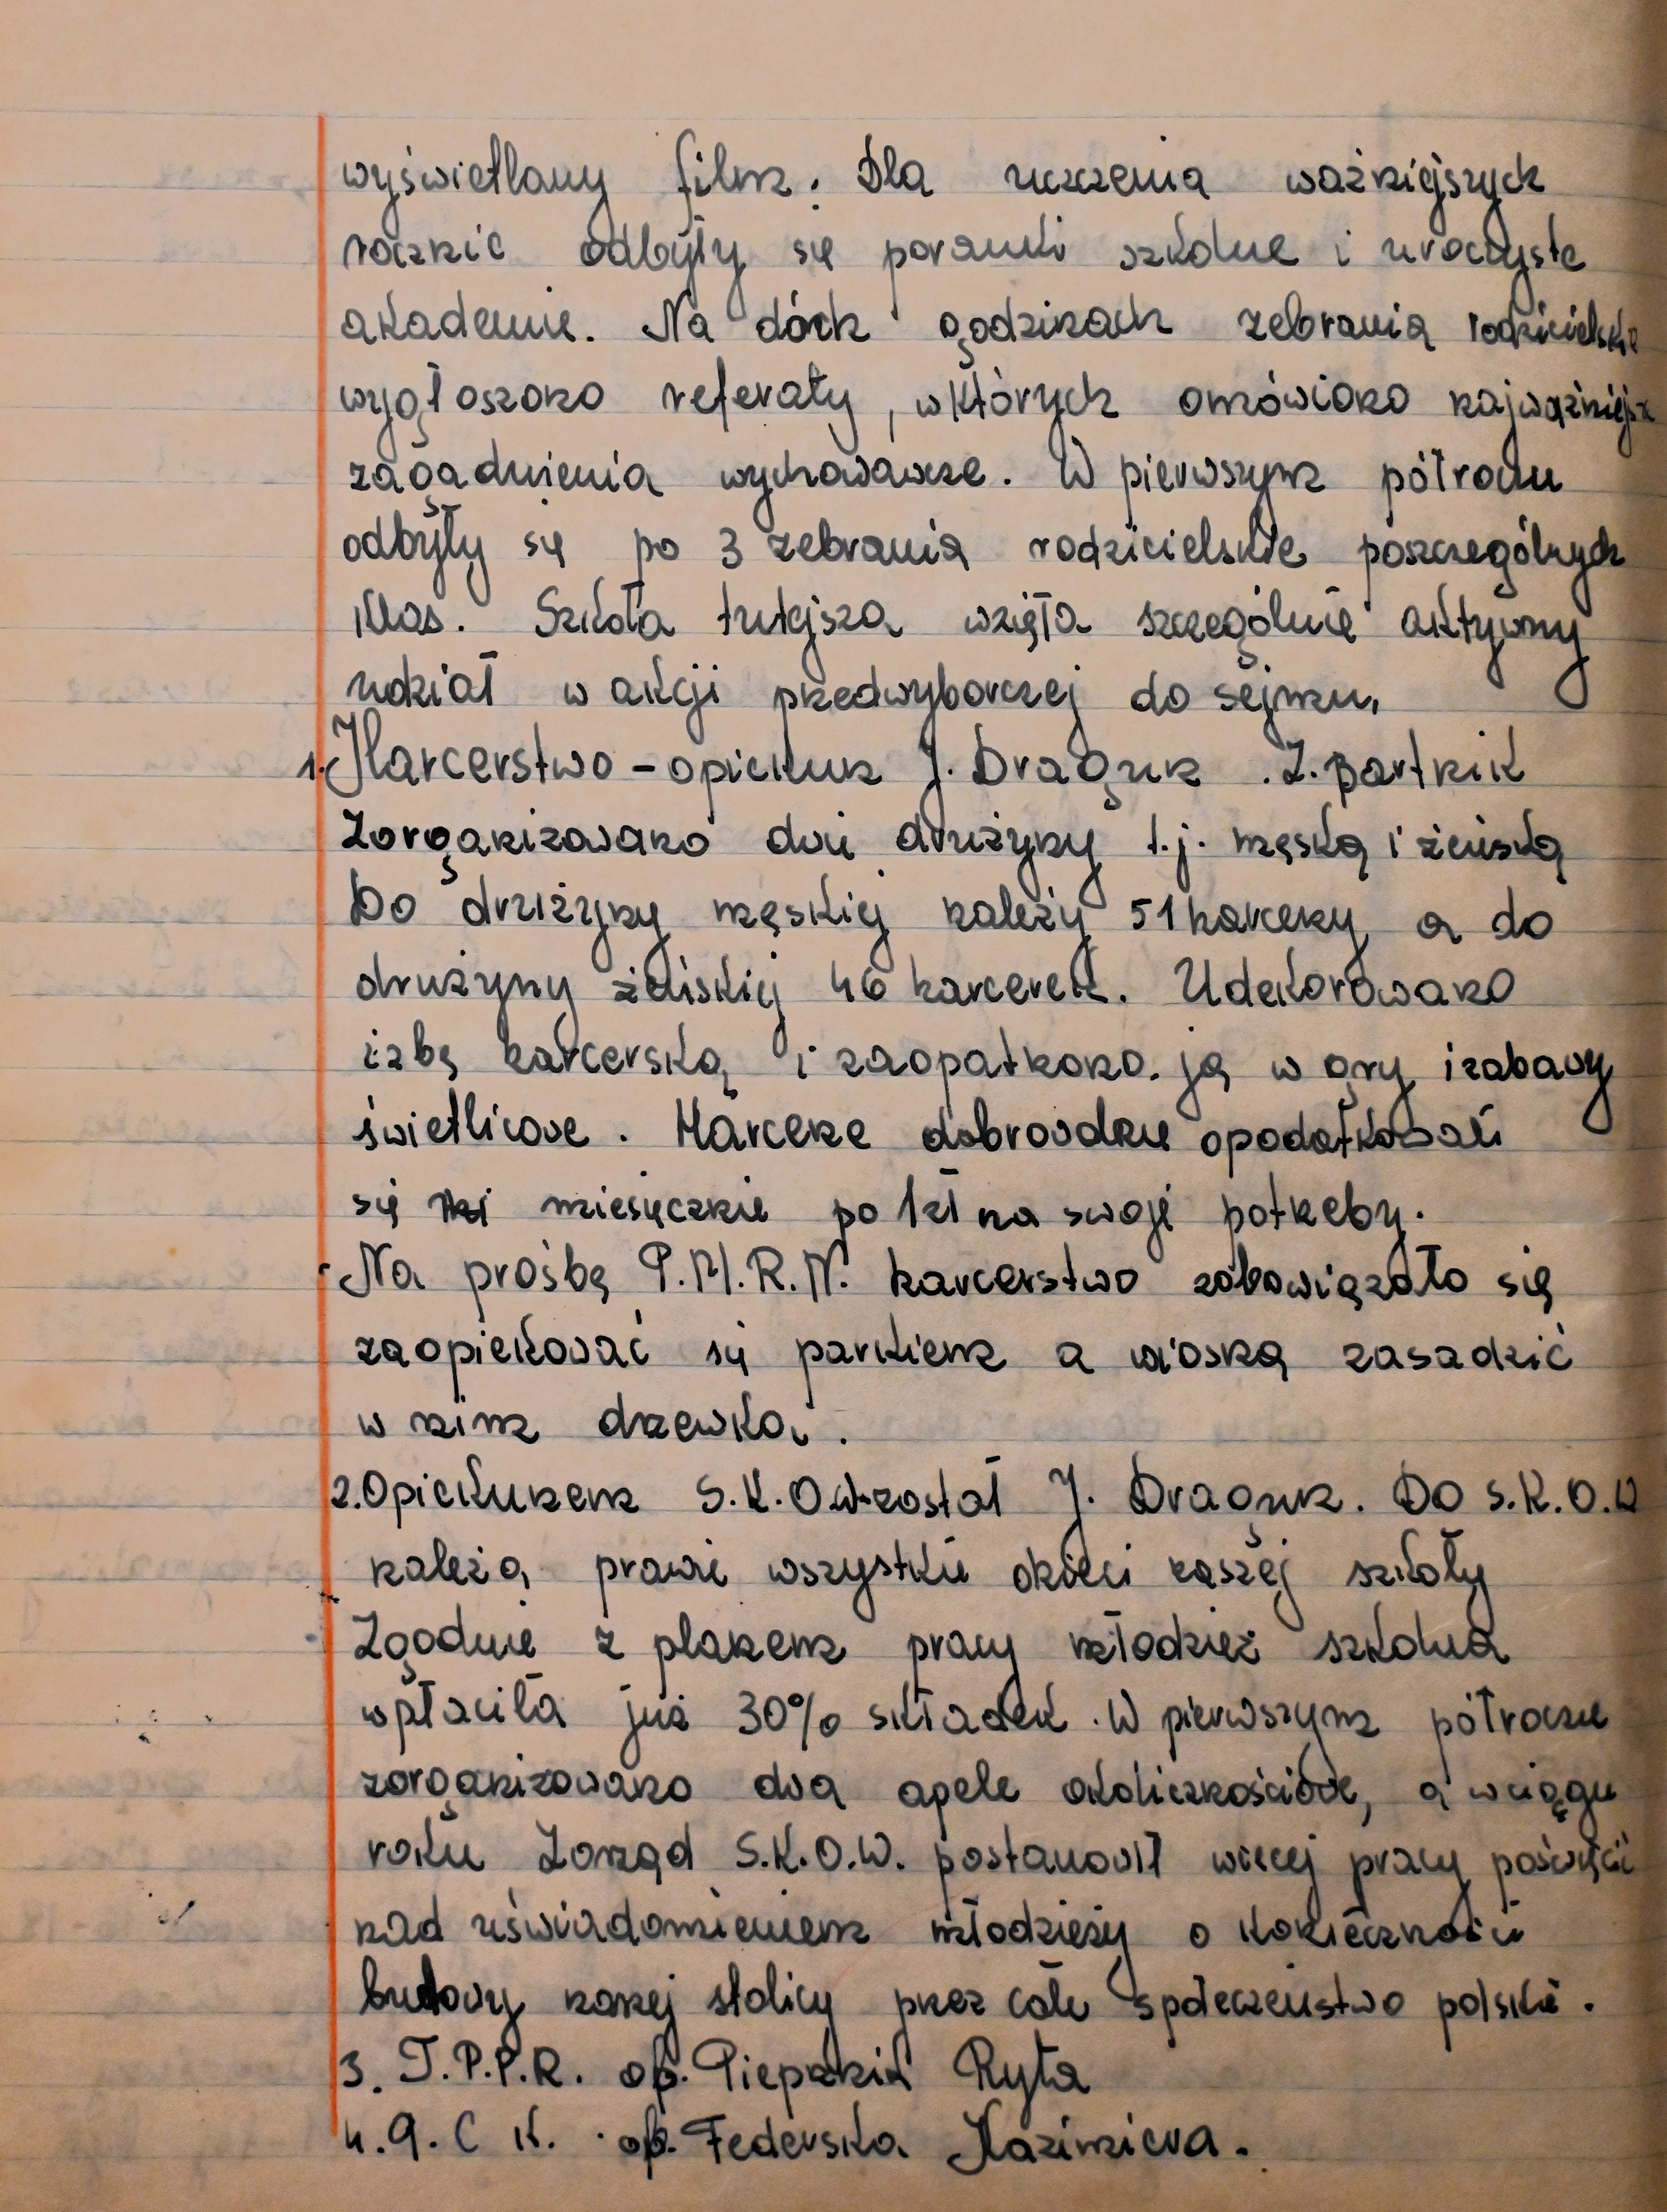 wyświetlany film. Dla uczczenia ważniejszych
rocznic odbyły się poranki szkolne i uroczyste
akademie. Na dóch godzinach zebrania rodzicielskie
wygłoszono referaty, w których omówiono najważniejsze
zagadnienia wychowawcze. W pierwszym półroczu
odbyły się po 3 zebrania rodzicielskie poszczególnych
klas. Szkoła tutejsza wzięła szczególnie aktywny
udział w akcji przedwyborczej do sejmu.
1. Harcerstwo - opiekun J. Dragun. Z. Bartnik
Zorganizowano dwie drużyny t.j. męską i żeńską
Do drużyny męskiej należy 51 harcerzy, a do
drużyny żeńskiej 46 harcerek. Udekorowano
izbę harcerską i zaopatrzono ją w gry i zabawy
świetlicowe. Harcerze dobrowolnie opodatkowali
się miesięcznie po 1 zł na swoje potrzeby.
Na prośbę P.M.R.N. harcerstwo zobowiązało się
zaopiekować się parkiem a wiosną zasadzić
w nim drzewka.
2. Opiekunem S.K.O.W. został J. Dragun. Do S.K.O.W
należą prawie wszystkie dzieci naszej szkoły
Zgodnie z planem pracy młodzież szkolna
wpłaciła już 30% składek. W pierwszym półroczu
zorganizowano dwa apele okolicznościowe, a w ciągu
roku Zarząd S.K.O.W. postanowił więcej pracy poświęcić
nad uświadomieniem młodzieży o konieczności
budowy naszej stolicy przez całe społeczeństwo polskie.
3. T.P.P.R. op. Piepрznik Ryta
4. P.C K. op. Federska Kazimiera.